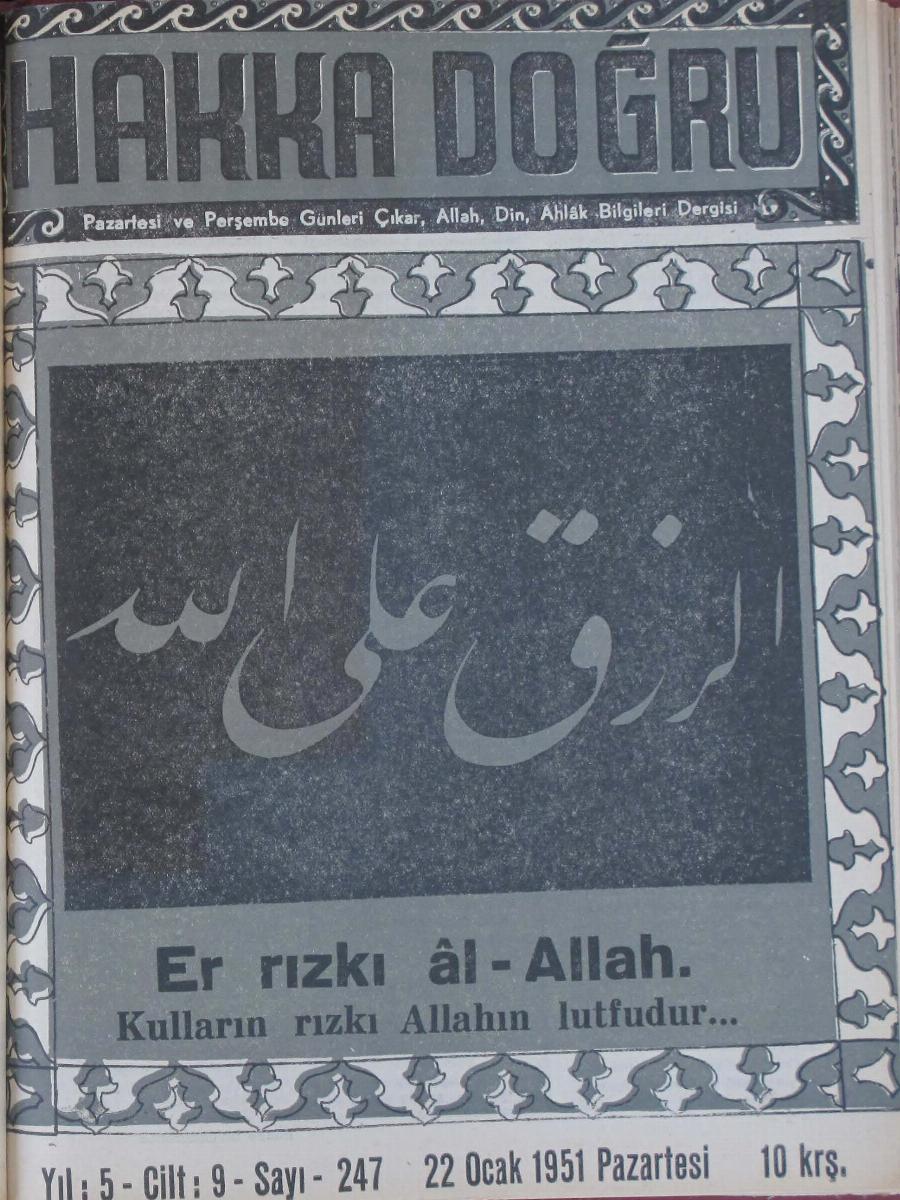 HAKKA DOĞRU
Pazartesi ve Perşembe Günleri Çıkar, Allah, Din, Ahlâk Bilgileri Dergisi
الرزق علی الله
Er rızkı âl - Allah.
Kulların rızkı Allahın lutfudur...
Yıl : 5 - Cilt : 9 - Sayı - 247 22 Ocak 1951 Pazartesi 10 krş.